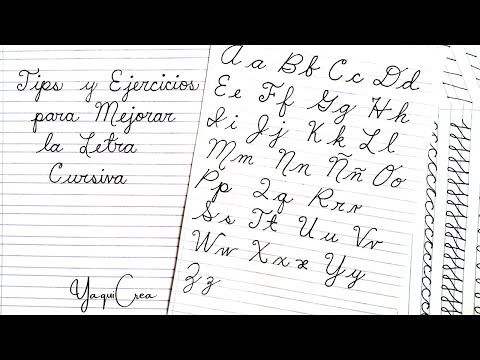 Tips y Ejercicios
para Mejorar
la Letra
Cursiva
YaquiCrea
A a Bb Cc Dd
Ee Ff Gg Hh
Ii Jj Kk Ll
Mm Nn Ññ Oo
Pp Qq Rrr
Ss Tt Uu Vv
Ww Xxx Yy
Zz